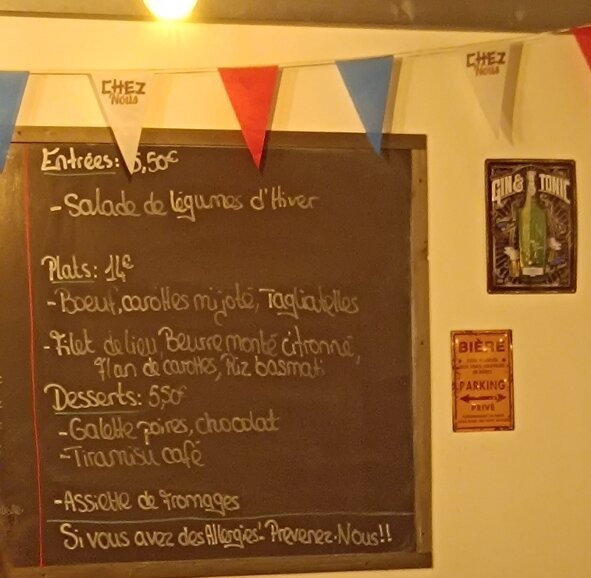 CHEZ
Nous
CHEZ
Nous
Entrées: 5,50€
- Salade de légumes d'Hiver
Plats: 14€
- Boeuf, carottes mijoté, Tagliatelles
- Filet de lieu, Beurre monté citronné,
Flan de carottes, Riz basmati
Desserts: 5,50€
- Galette poires, chocolat
- Tiramisu café
- Assiette de fromages
Si vous avez des Allergies! Prevenez-Nous!!
GIN & TONIC
BIÈRE
PARKING
PRIVÉ